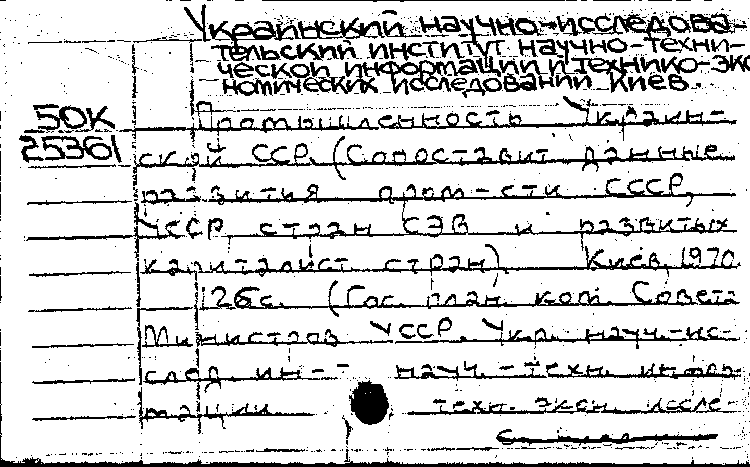 Украинский научно-исследова-
тельский институт научно-техни-
ческой информации и технико-эко
номических исследований Киев.
50К
25361
Промышленность Украин-
ской ССР. (Сопоставит данные
развития пром-сти СССР,
УССР, стран СЭВ и развитых
капиталист. стран). Киев, 1970.
126с. (Гос. план. ком. Совета
Министров УССР. Укр. науч.-ис-
след. ин-т науч.-техн. инфор-
мации техн. экон. иссле-